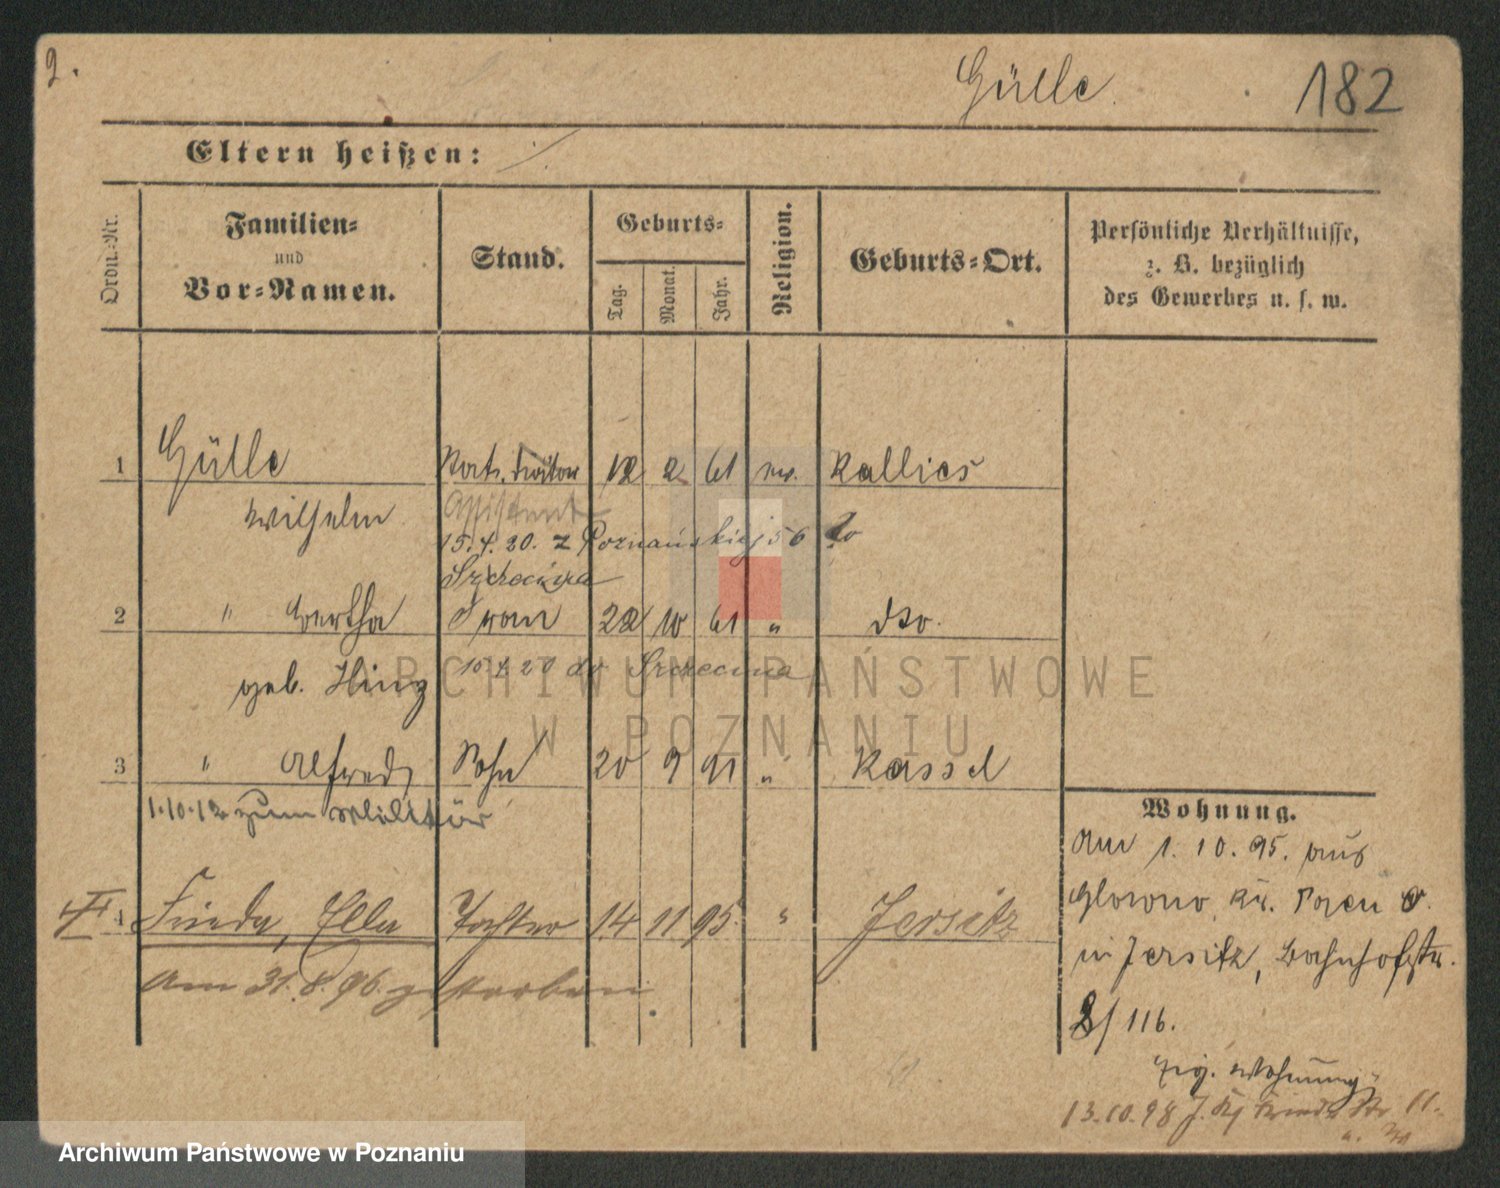 2.
Gülle
182
Eltern heißen:
Ordn.-Nr.
Familien-
und
Vor-Namen.
Stand.
Geburts-
Tag.
Monat.
Jahr.
Religion.
Geburts-Ort.
Persönliche Verhältnisse,
z. B. bezüglich
des Gewerbes u. s. w.
1 Gülle 12 2 61 ev. Kallies
Wilhelm Assistent
15.4.20. z Poznańskiej 56 do
Szczecina
2 " Bertha Frau 22 10 61 " dto.
geb. Hinz 15.4.20 do Szczecina
ARCHIWUM PAŃSTWOWE
W POZNANIU
3 " Alfred Sohn 20 9 91 " Kassel
1.10.12 zum Militär
4 Frieda, Ella Tochter 14 11 95. " Jersitz
Am 31.8.96. gestorben
Wohnung.
Am 1.10.95. aus
Glowno, Kr. Posen O.
in Jersitz, Bahnhofstr.
2/116.
Wohnung
13.10.98 J. Str. 11.
Archiwum Państwowe w Poznaniu